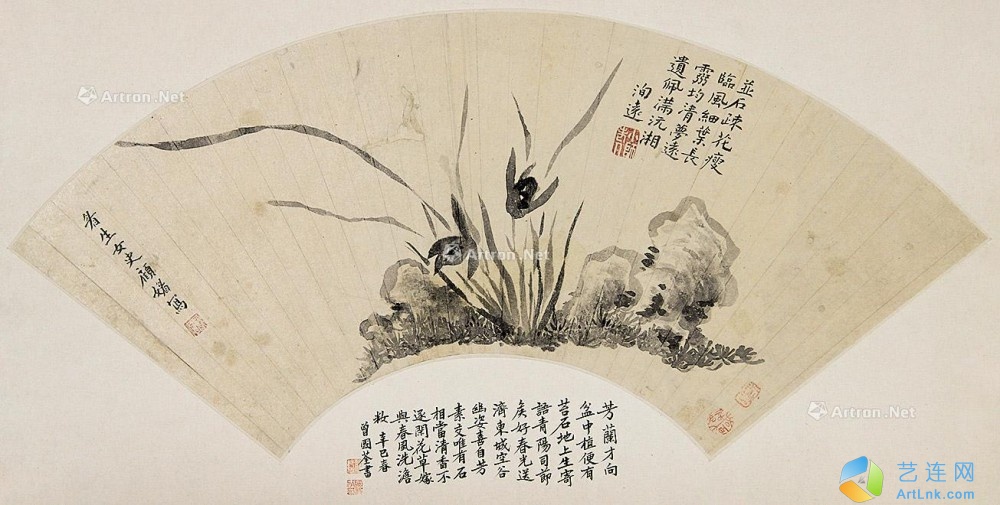 並石疎花瘦
臨風細葉長
靈均清夢遠
遺佩滿沅湘
洵遠
眉生女史顧媚寫
芳蘭才向
盆中植便有
苔石地上生寄
語青陽司節
矦好春光送
濟東城空谷
幽姿喜自芳
素交唯有石
相當清香不
逐閑花草嫁
與春風洗澹
糚辛巳春
曾國荃書
Artron.Net
Artron.Net
Artron.Net
Artron.Net
艺连网
ArtLnk.com